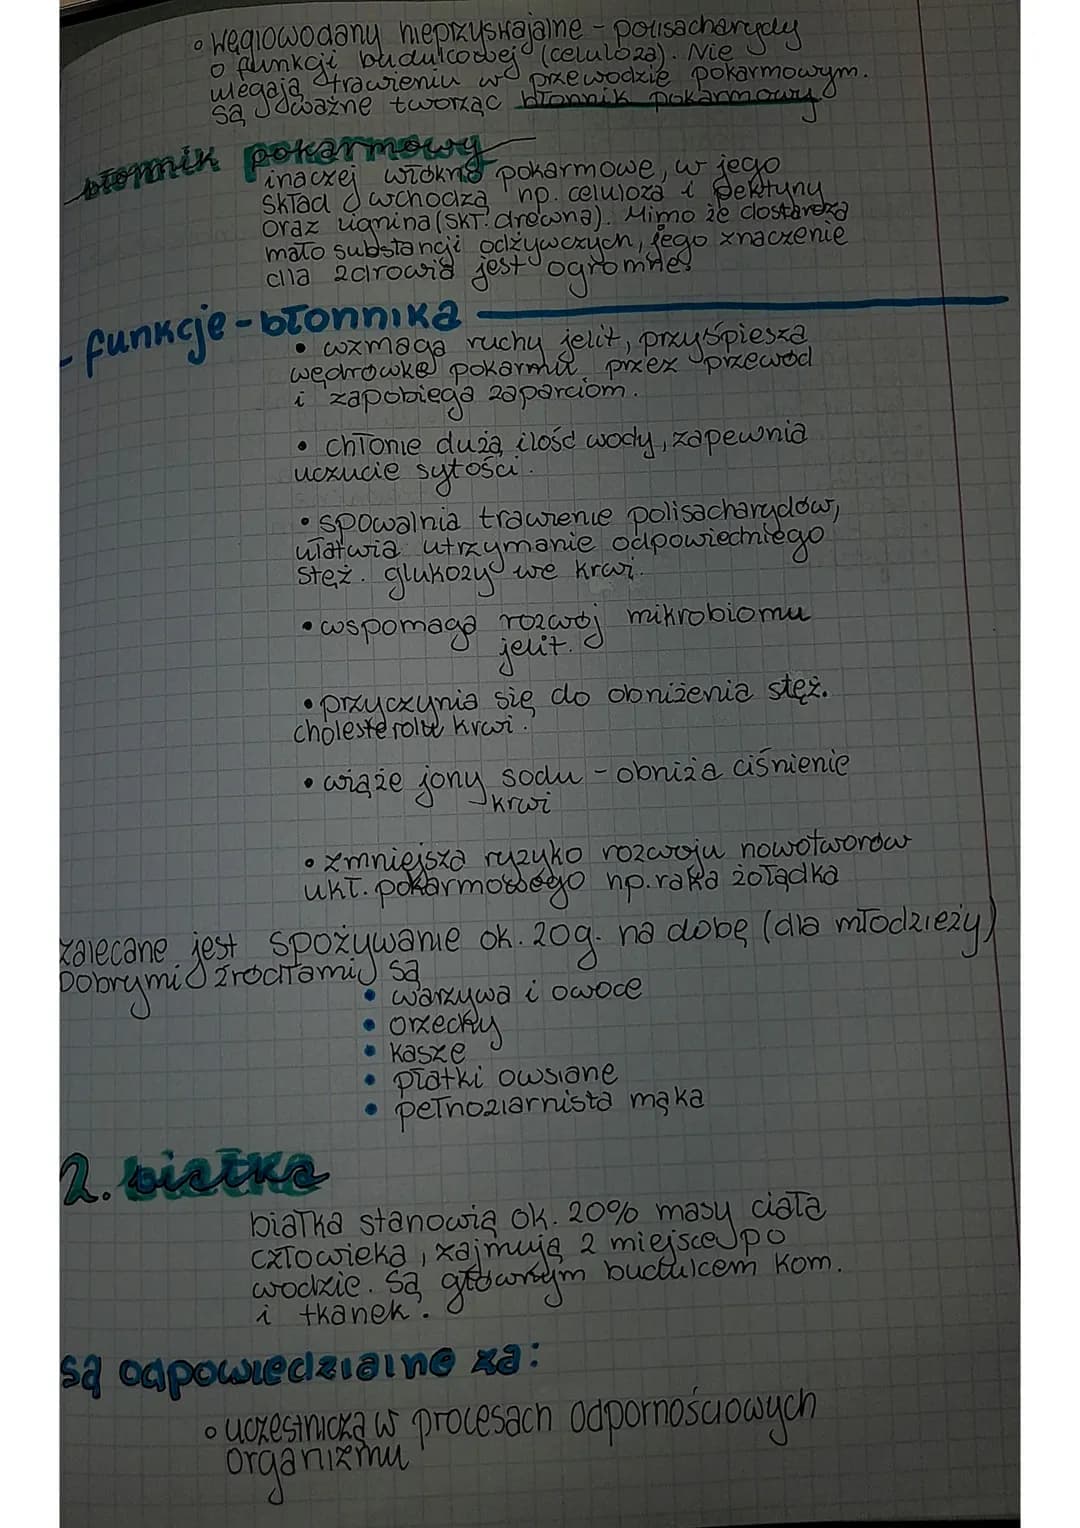 • węglowodany nieprzyswajalne - polisacharydy
o funkcji budulcowej (celuloza). Nie
ulegają trawieniu w przewodzie pokarmowym.
są ważne tworząc błonnik pokarmowy
błonnik pokarmowy
inaczej włókno pokarmowe, w jego
skład wchodzą np. celuloza i pektyny
oraz lignina (skł. drewna). Mimo że dostarcza
mało substancji odżywczych, jego znaczenie
dla zdrowia jest ogromne.
- funkcje - błonnika
• wzmaga ruchy jelit, przyśpiesza
wędrówkę pokarmu przez przewód
i zapobiega zaparciom.
• chłonie dużą ilość wody, zapewnia
uczucie sytości.
• spowalnia trawienie polisacharydów,
ułatwia utrzymanie odpowiedniego
stęż. glukozy we krwi.
• wspomaga rozwój mikrobiomu
jelit.
• przyczynia się do obniżenia stęż.
cholesterolu krwi.
• wiąże jony sodu - obniża ciśnienie
krwi
• zmniejsza ryzyko rozwoju nowotworów
ukł. pokarmowego np. raka żołądka
zalecane jest spożywanie ok. 20g. na dobę (dla młodzieży)
Dobrymi źródłami są
• warzywa i owoce
• orzechy
• kasze
• płatki owsiane
• pełnoziarnista mąka
2. białka
białka stanowią ok. 20% masy ciała
człowieka, zajmują 2 miejsce po
wodzie. Są głównym budulcem kom.
i tkanek.
są odpowiedzialne za:
• uczestniczą w procesach odpornościowych
organizmu